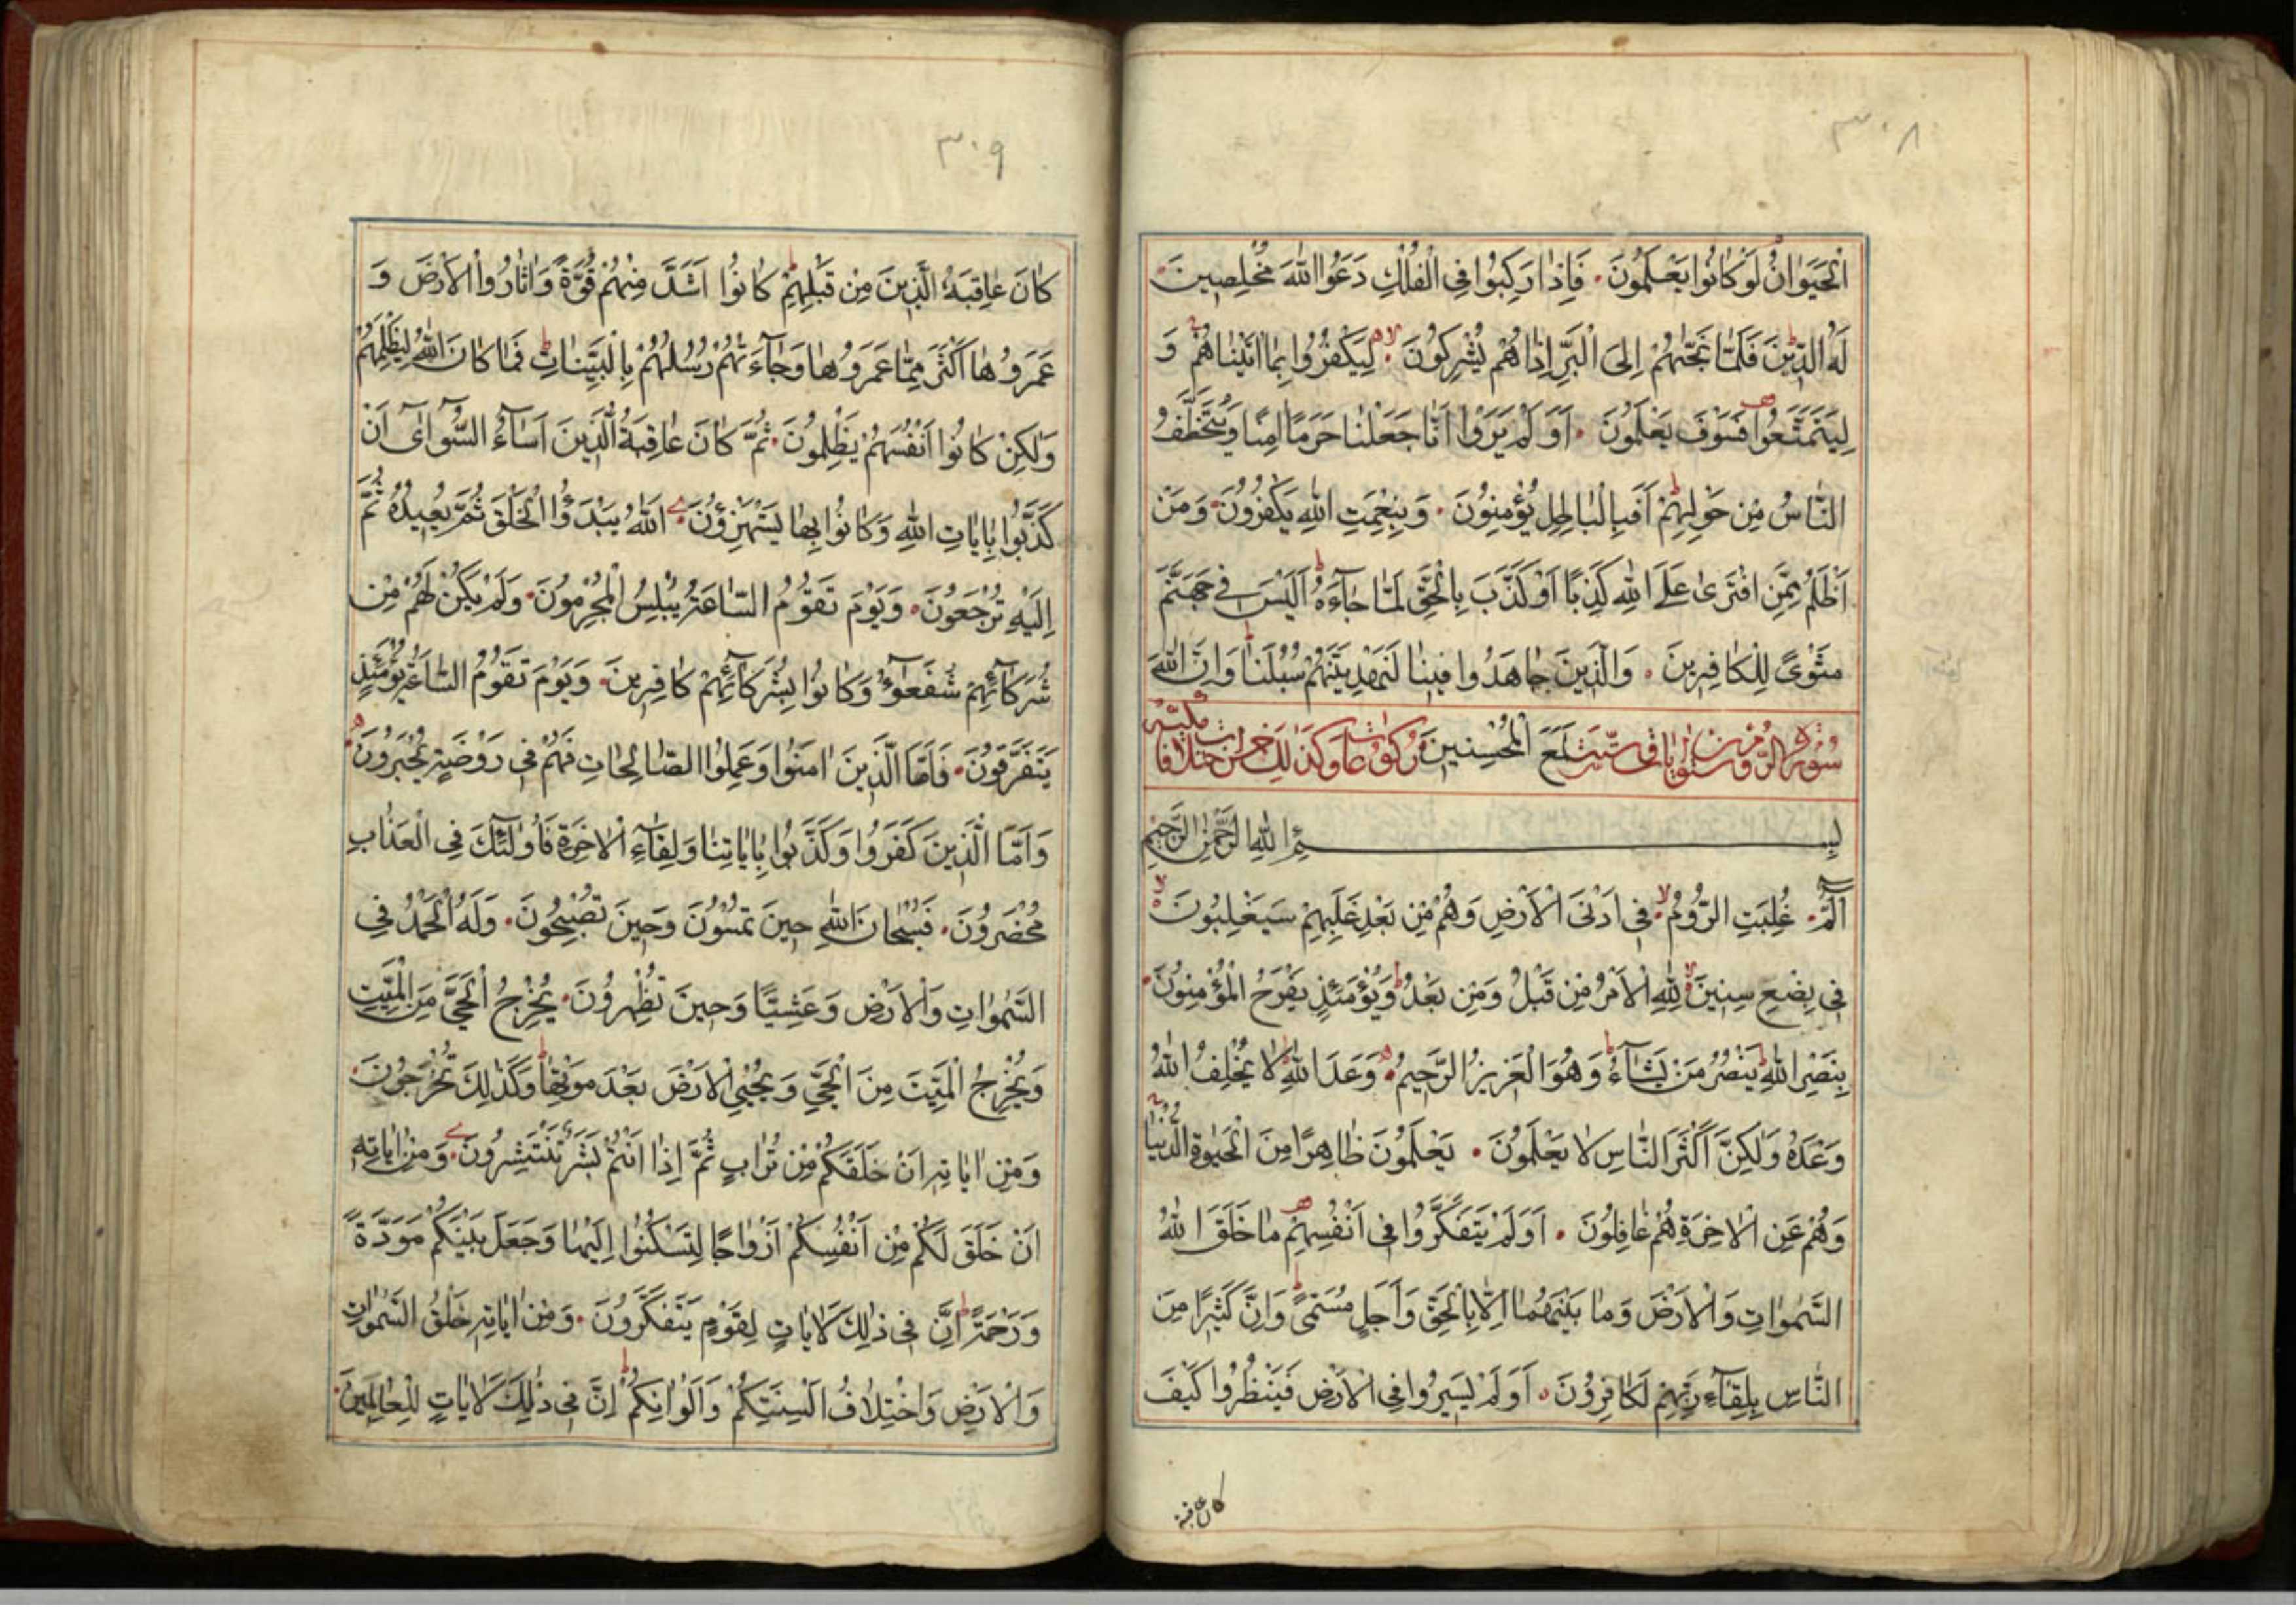 ٣٠٨
الْحَيَوَانُ لَوْ كَانُوا يَعْلَمُونَ فَإِذَا رَكِبُوا فِي الْفُلْكِ دَعَوُا اللَّهَ مُخْلِصِينَ
لَهُ الدِّينَ فَلَمَّا نَجَّيهُمْ إِلَى الْبَرِّ إِذَا هُمْ يُشْرِكُونَ لِيَكْفُرُوا بِمَا اٰتَيْنَاهُمْ وَ
لِيَتَمَتَّعُوا فَسَوْفَ يَعْلَمُونَ أَوَلَمْ يَرَوْا أَنَّا جَعَلْنَا حَرَمًا اٰمِنًا وَيُتَخَطَّفُ
النَّاسُ مِنْ حَوْلِهِمْ أَفَبِالْبَاطِلِ يُؤْمِنُونَ وَبِنِعْمَتِ اللَّهِ يَكْفُرُونَ وَمَنْ
أَظْلَمُ مِمَّنِ افْتَرَىٰ عَلَى اللَّهِ كَذِبًا أَوْ كَذَّبَ بِالْحَقِّ لَمَّا جَاءَهُ أَلَيْسَ فِي جَهَنَّمَ
مَثْوًى لِلْكَافِرِينَ وَالَّذِينَ جَاهَدُوا فِينَا لَنَهْدِيَنَّهُمْ سُبُلَنَا وَإِنَّ اللَّهَ
سورة الروم لَمَعَ الْمُحْسِنِينَ مكية
بِسْمِ اللَّهِ الرَّحْمٰنِ الرَّحِيمِ
الٓمٓ غُلِبَتِ الرُّومُ فِي أَدْنَى الْأَرْضِ وَهُمْ مِنْ بَعْدِ غَلَبِهِمْ سَيَغْلِبُونَ
فِي بِضْعِ سِنِينَ لِلَّهِ الْأَمْرُ مِنْ قَبْلُ وَمِنْ بَعْدُ وَيَوْمَئِذٍ يَفْرَحُ الْمُؤْمِنُونَ
بِنَصْرِ اللَّهِ يَنْصُرُ مَنْ يَشَاءُ وَهُوَ الْعَزِيزُ الرَّحِيمُ وَعْدَ اللَّهِ لَا يُخْلِفُ اللَّهُ
وَعْدَهُ وَلٰكِنَّ أَكْثَرَ النَّاسِ لَا يَعْلَمُونَ يَعْلَمُونَ ظَاهِرًا مِنَ الْحَيٰوةِ الدُّنْيَا
وَهُمْ عَنِ الْاٰخِرَةِ هُمْ غَافِلُونَ أَوَلَمْ يَتَفَكَّرُوا فِي أَنْفُسِهِمْ مَا خَلَقَ اللَّهُ
السَّمٰوَاتِ وَالْأَرْضَ وَمَا بَيْنَهُمَا إِلَّا بِالْحَقِّ وَأَجَلٍ مُسَمًّى وَإِنَّ كَثِيرًا مِنَ
النَّاسِ بِلِقَاءِ رَبِّهِمْ لَكَافِرُونَ أَوَلَمْ يَسِيرُوا فِي الْأَرْضِ فَيَنْظُرُوا كَيْفَ
كان عاقبة
٣٠٩
كَانَ عَاقِبَةُ الَّذِينَ مِنْ قَبْلِهِمْ كَانُوا أَشَدَّ مِنْهُمْ قُوَّةً وَأَثَارُوا الْأَرْضَ وَ
عَمَرُوهَا أَكْثَرَ مِمَّا عَمَرُوهَا وَجَاءَتْهُمْ رُسُلُهُمْ بِالْبَيِّنَاتِ فَمَا كَانَ اللَّهُ لِيَظْلِمَهُمْ
وَلٰكِنْ كَانُوا أَنْفُسَهُمْ يَظْلِمُونَ ثُمَّ كَانَ عَاقِبَةُ الَّذِينَ أَسَاءُ السُّوأٰى أَنْ
كَذَّبُوا بِاٰيَاتِ اللَّهِ وَكَانُوا بِهَا يَسْتَهْزِؤُنَ اللَّهُ يَبْدَؤُا الْخَلْقَ ثُمَّ يُعِيدُهُ ثُمَّ
إِلَيْهِ تُرْجَعُونَ وَيَوْمَ تَقُومُ السَّاعَةُ يُبْلِسُ الْمُجْرِمُونَ وَلَمْ يَكُنْ لَهُمْ مِنْ
شُرَكَائِهِمْ شُفَعٰؤُا وَكَانُوا بِشُرَكَائِهِمْ كَافِرِينَ وَيَوْمَ تَقُومُ السَّاعَةُ يَوْمَئِذٍ
يَتَفَرَّقُونَ فَأَمَّا الَّذِينَ اٰمَنُوا وَعَمِلُوا الصَّالِحَاتِ فَهُمْ فِي رَوْضَةٍ يُحْبَرُونَ
وَأَمَّا الَّذِينَ كَفَرُوا وَكَذَّبُوا بِاٰيَاتِنَا وَلِقَاءِ الْاٰخِرَةِ فَأُولٰئِكَ فِي الْعَذَابِ
مُحْضَرُونَ فَسُبْحَانَ اللَّهِ حِينَ تُمْسُونَ وَحِينَ تُصْبِحُونَ وَلَهُ الْحَمْدُ فِي
السَّمٰوَاتِ وَالْأَرْضِ وَعَشِيًّا وَحِينَ تُظْهِرُونَ يُخْرِجُ الْحَيَّ مِنَ الْمَيِّتِ
وَيُخْرِجُ الْمَيِّتَ مِنَ الْحَيِّ وَيُحْيِي الْأَرْضَ بَعْدَ مَوْتِهَا وَكَذٰلِكَ تُخْرَجُونَ
وَمِنْ اٰيَاتِهِ أَنْ خَلَقَكُمْ مِنْ تُرَابٍ ثُمَّ إِذَا أَنْتُمْ بَشَرٌ تَنْتَشِرُونَ وَمِنْ اٰيَاتِهِ
أَنْ خَلَقَ لَكُمْ مِنْ أَنْفُسِكُمْ أَزْوَاجًا لِتَسْكُنُوا إِلَيْهَا وَجَعَلَ بَيْنَكُمْ مَوَدَّةً
وَرَحْمَةً إِنَّ فِي ذٰلِكَ لَاٰيَاتٍ لِقَوْمٍ يَتَفَكَّرُونَ وَمِنْ اٰيَاتِهِ خَلْقُ السَّمٰوَاتِ
وَالْأَرْضِ وَاخْتِلَافُ أَلْسِنَتِكُمْ وَأَلْوَانِكُمْ إِنَّ فِي ذٰلِكَ لَاٰيَاتٍ لِلْعَالَمِينَ